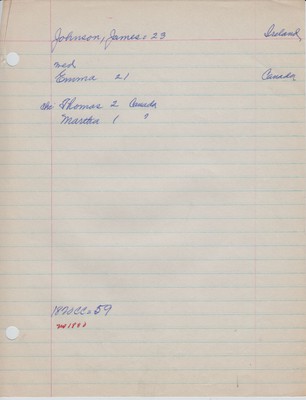 Johnson, James, 23 Ireland
med
Emma 21 Canada
cho Thomas 2 Canada
Martha 1 "
1870CC=59